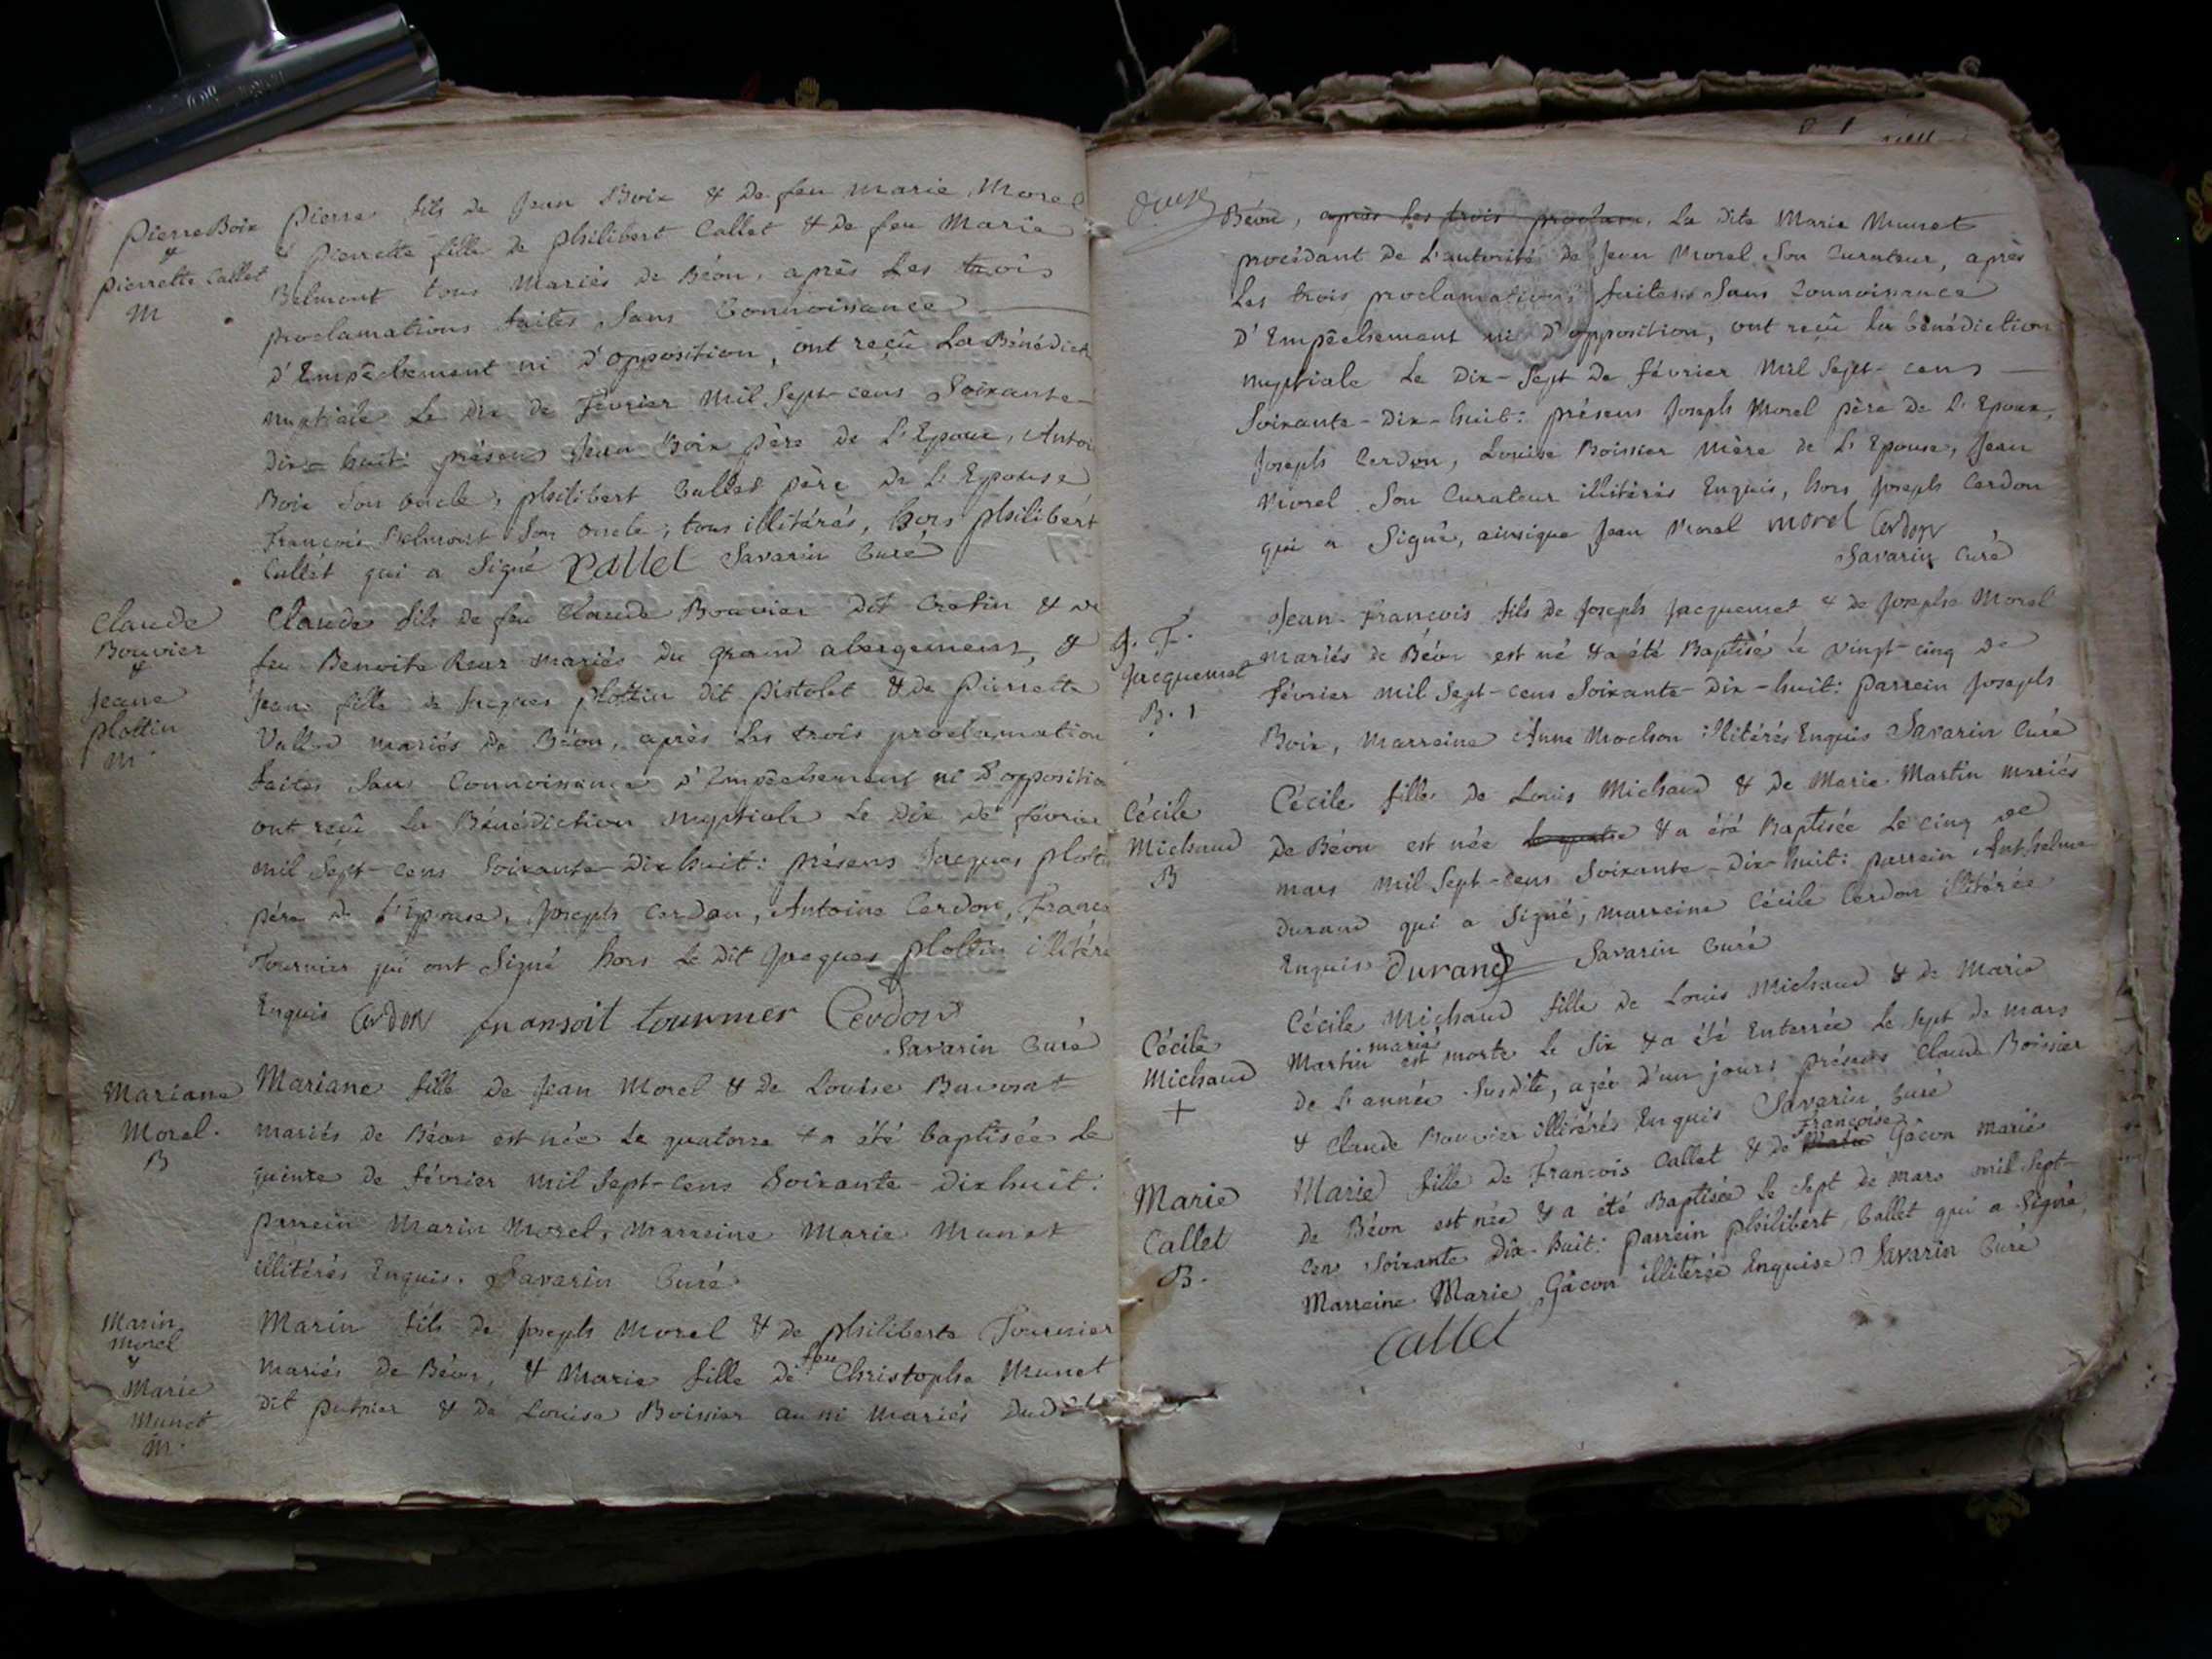 Pierre Boix
&
Pierrette Callet
M
Pierre fils de Jean Boix & de feu Marie Morel
& Pierrette fille de Philibert Callet & de feu Marie
Belmont tous mariés de Béon, après les trois
proclamations faites sans connoissance
d'Empêchement ni d'opposition, ont reçû la Bénédict
nuptiale le dix de Fevrier mil Sept-cens Soixante-
dix-huit: présens Jean Boix père de l'Epoux, Antoi
Boix son oncle, philibert Callet père de l'Epouse
François Belmont son oncle; tous illitérés, hors philibert
Callet qui a signé Callet Savarin Curé
Claude
Bouvier
&
Jeane
plottin
M
Claude fils de feu Claude Bouvier dit Cretin & de
feu Benoite Reur mariés du grand abergement, &
Jeane fille de Jacques plottin dit pistolet & de Pierrette
Vallod mariés de Béon, après les trois proclamation
faites sans connoissance d'Empêchement ni d'oppositio
ont reçû la Bénédiction nuptiale le dix de février
mil Sept-cens Soixante-dixhuit: présens Jacques plotti
père de l'Epouse, Joseph Cerdon, Antoine Cerdon, Franço
Fournier qui ont signé hors le dit Jacques plottin illitéré
Enquis Cerdon fransoit tournier Cerdon
Savarin Curé
Mariane
Morel.
B
Mariane fille de Jean Morel & de Louise Bavosat
mariés de Béon est née le quatorze & a été baptisée le
quinze de février mil Sept-cens Soixante-dixhuit:
parrein Marin Morel, marreine Marie Munet
illitérés Enquis. Savarin Curé
Marin
morel
&
Marie
Munet
M.
Marin fils de Joseph Morel & de philiberte Fournier
mariés de Béon, & Marie fille de feu Christophe Munet
dit & de Louise Boissier aussi mariés dudit
Béon, après les trois proclam. La dite Marie Munet
procédant de l'autorité de Jean Morel son Curateur, après
les trois proclamations faites sans connoissance
d'Empêchement ni d'opposition, ont reçû la bénédiction
nuptiale le dix-Sept de février Mil Sept-cens
Soixante-dix-huit: présens Joseph Morel père de l'Epoux,
Joseph Cerdon, Louise Boissier mère de l'Epouse, Jean
Morel son Curateur illitérés Enquis, hors Joseph Cerdon
qui a signé, ainsique Jean Morel morel Cerdon
Savarin Curé
J. F.
Jacquemet
B. 1
Jean-François fils de Joseph Jacquemet & de Josephe Morel
mariés de Béon est né & a été Baptisé le vingt-cinq de
février mil Sept-cens Soixante-dix-huit: parrein Joseph
Boix, Marreine Anne Mochon illitérés Enquis Savarin Curé
Cécile
Michaud
B
Cécile fille de Louis Michaud & de Marie Martin mariés
de Béon est née le quatre & a été Baptisée le cinq de
mars mil Sept-cens Soixante-dix-huit: parrein Anthelme
durand qui a signé, marreine Cécile Cerdon illitérée
Enquise Durand Savarin Curé
Cécile
Michaud
+
Cécile Michaud fille de Louis Michaud & de Marie
Martin mariés est morte le six & a été Enterrée le sept de mars
de l'année susdite, agée d'un jours présens Claude Boissier
& Claude Bouvier illitérés Enquis Savarin Curé
Marie
Callet
B.
Marie fille de François Callet & de Françoise Gâcon mariés
de Béon est née & a été Baptisée le sept de mars mil Sept-
cens Soixante dix-huit: parrein philibert Callet qui a signé,
Marreine Marie Gâcon illitérée Enquise Savarin Curé
Callet